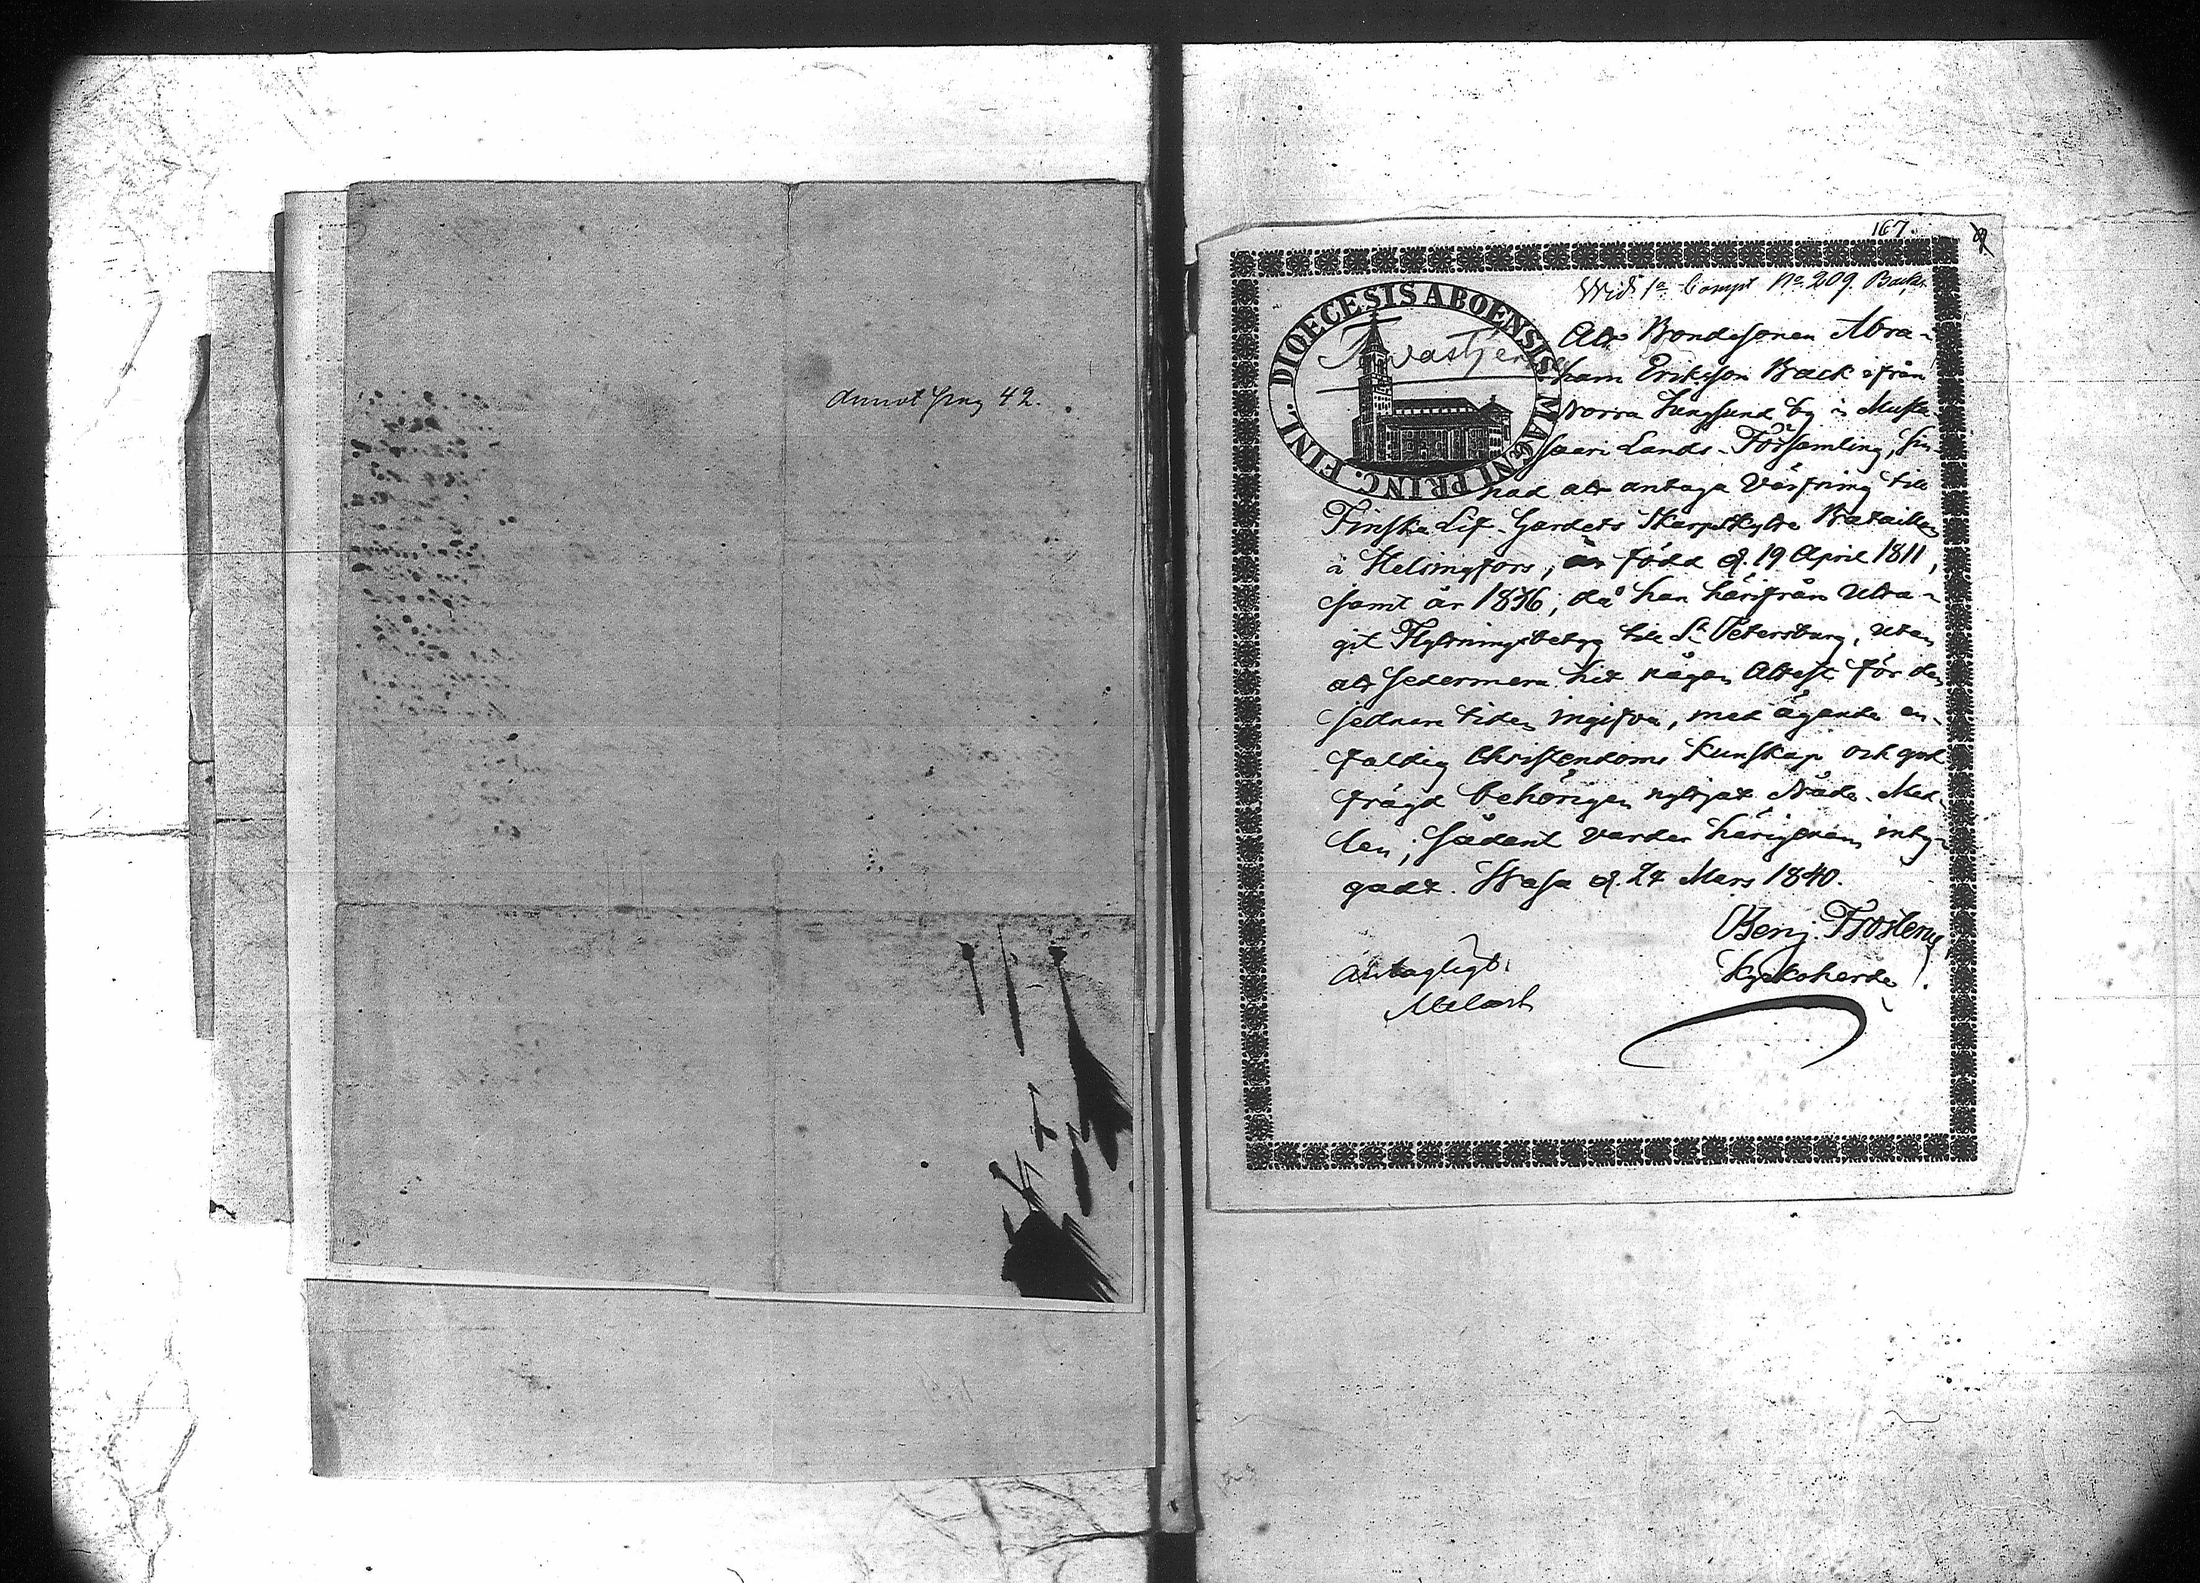 Annot pag 42.
167.
Wid 1a Comp: No 209. Back.
DIOECESIS ABOENSIS MAGNI PRINC. FINL.
Att Bondesonen Abra-
ham Eriksson Back ifrån
Norra Vungsund by i Musta-
saari Lands-Församling, sin-
nad att antaga Värfning till
Finska Lif-Gardets Skarpskytte Bataillon
i Helsingfors, är född d. 19 April 1811,
samt är 1836, då han härifrån utta-
git Flyttningsbetyg till St Petersburg, utan
att sedermera hit någon Attest för den
sednare tiden ingifva, med ägande en-
faldig Christendoms kunskap och god
frägd behörigen nyttjat Nåde-Med-
len; sådant varder härigenom inty-
gadt. Wasa d. 24 Mars 1840.
Benj. Frosterus
Kyrkoherde.
Antagligt.